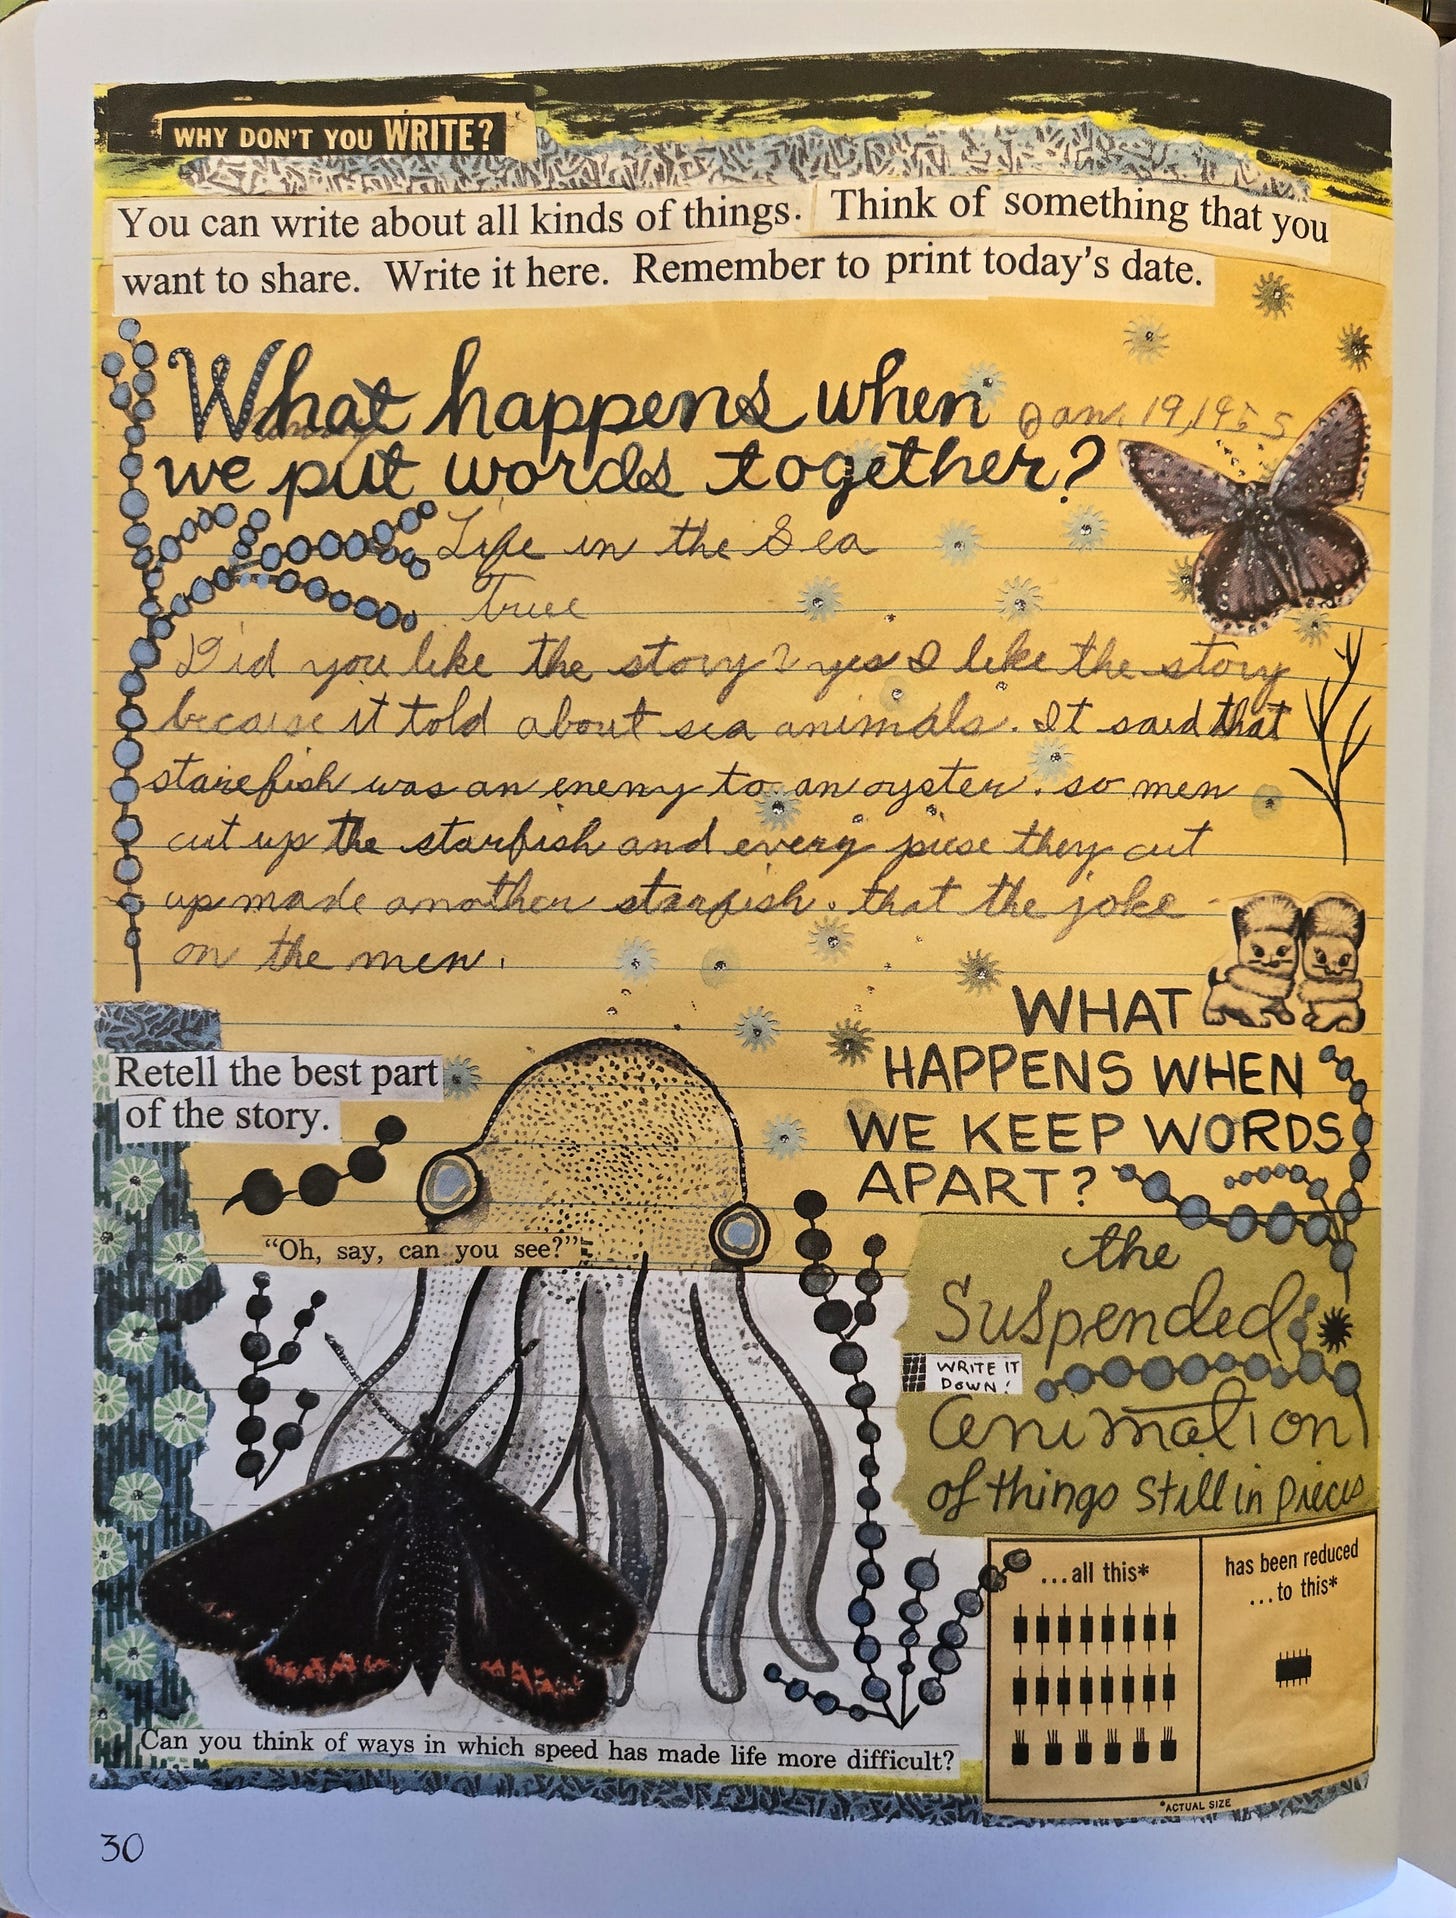 WHY DON'T YOU WRITE?
You can write about all kinds of things. Think of something that you
want to share. Write it here. Remember to print today's date.
What happens when
Jan. 19, 1965
we put words together?
Life in the Sea
True
Did you like the story? yes I like the story
because it told about sea animals. It said that
starefish was an enemy to an oyster. so men
cut up the starfish and every piese they cut
up made another starfish. that the joke
on the men.
WHAT
HAPPENS WHEN
WE KEEP WORDS
APART?
Retell the best part
of the story.
"Oh, say, can you see?"
the
Suspended
WRITE IT
DOWN!
animation
of things still in pieces
...all this*
has been reduced
...to this*
*ACTUAL SIZE
Can you think of ways in which speed has made life more difficult?
30